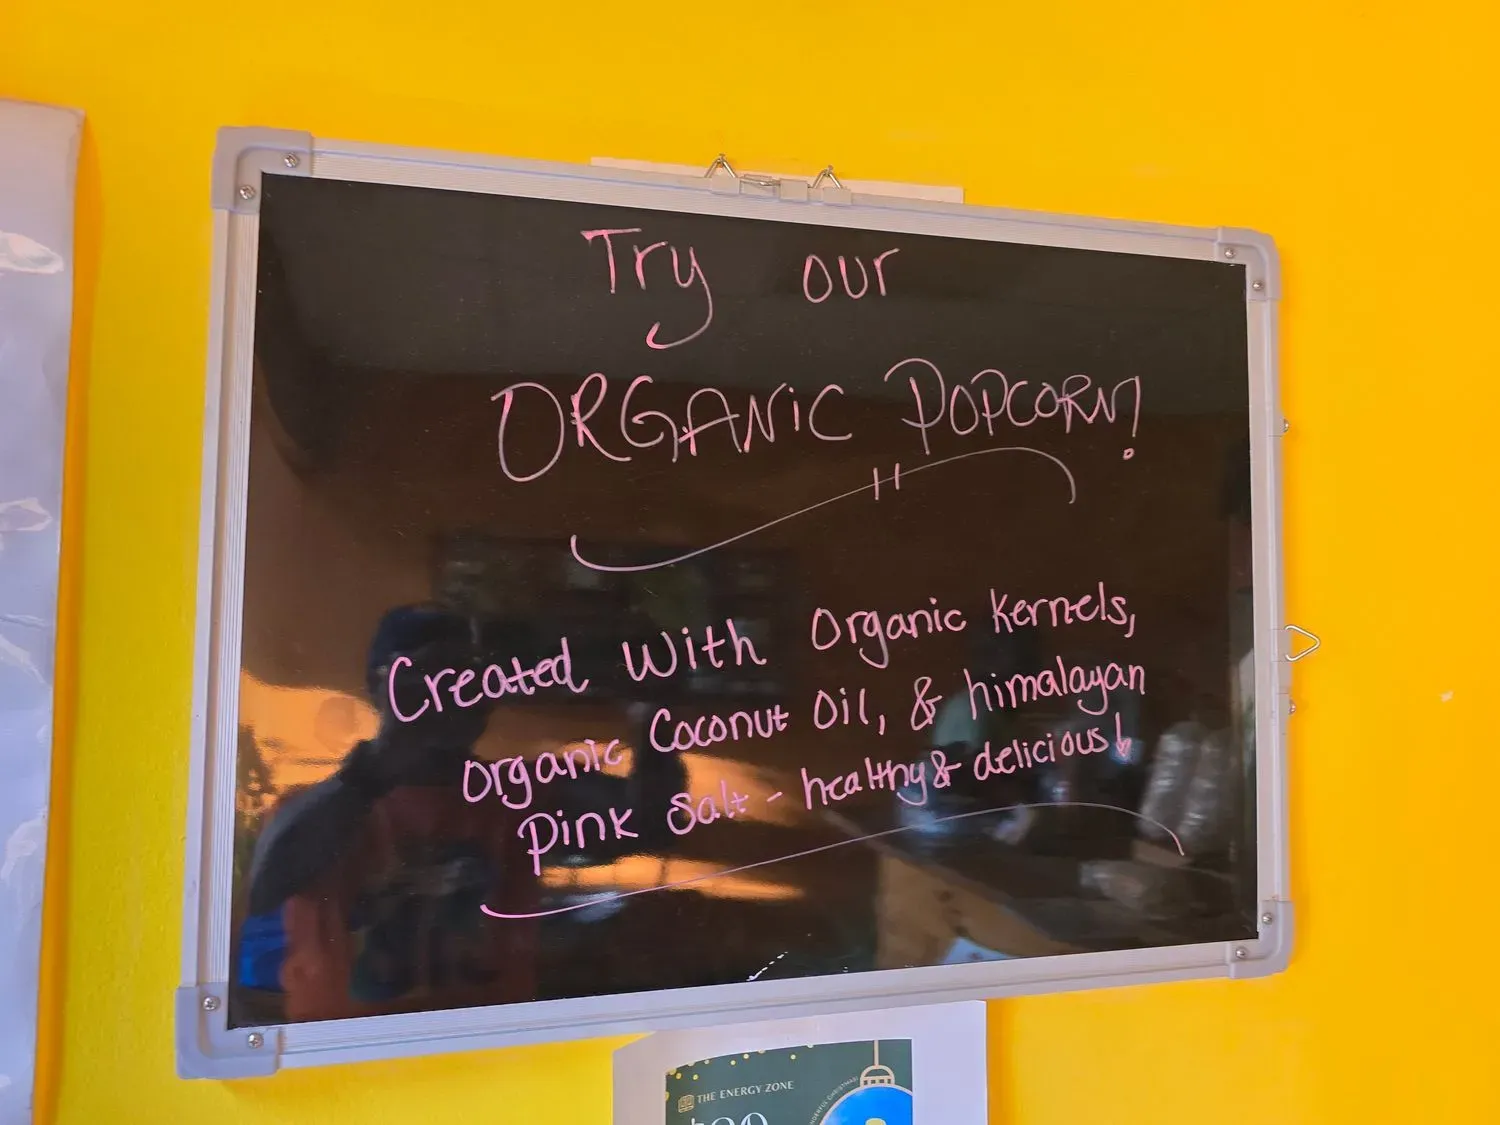 Try our
ORGANIC POPCORN!
Created With Organic Kernels,
Organic Coconut Oil, & himalayan
Pink Salt - healthy & delicious!
THE ENERGY ZONE